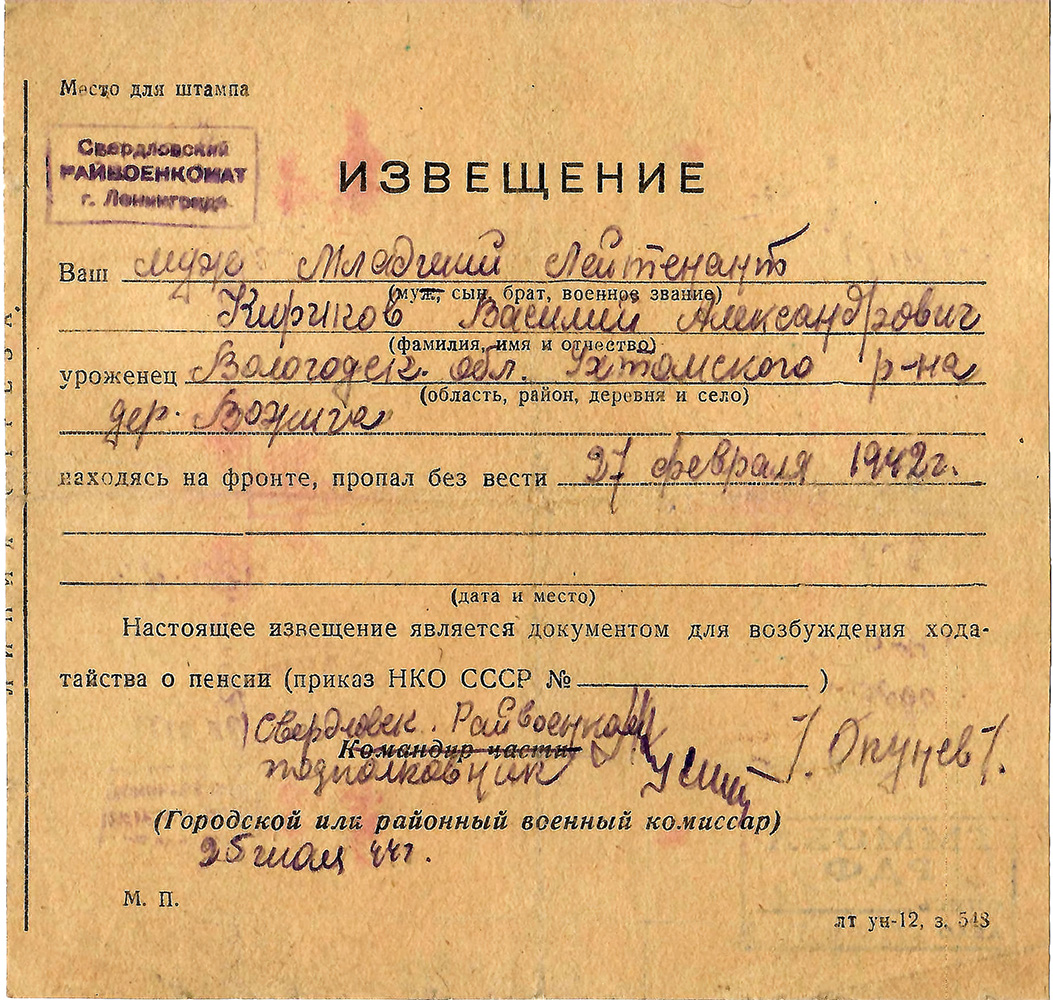 Место для штампа
Свердловский
РАЙВОЕНКОМАТ
г. Ленинграда
ИЗВЕЩЕНИЕ
Ваш муж Младший Лейтенант
(муж, сын, брат, военное звание)
Кириков Василий Александрович
(фамилия, имя и отчество)
уроженец Вологодск. обл. Ухтомского р-на
(область, район, деревня и село)
дер. Вожига
находясь на фронте, пропал без вести 27 февраля 1942г.
(дата и место)
Настоящее извещение является документом для возбуждения хода-
тайства о пенсии (приказ НКО СССР № )
Свердловск. Райвоенком
Командир части
подполковник /. Окунев/.
(Городской или районный военный комиссар)
25 44г.
М. П.
лт ун-12, з. 548